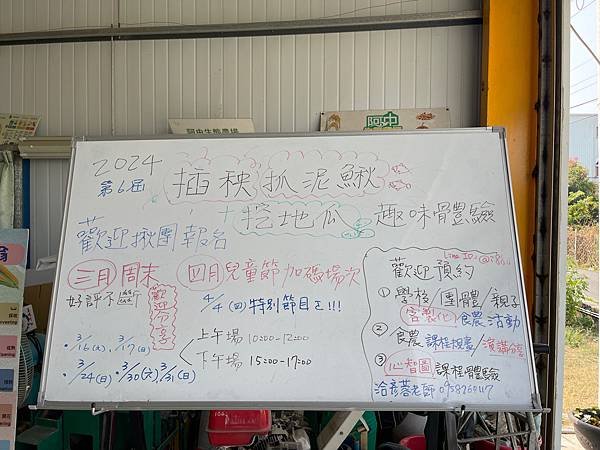 阿忠生態農場
阿中
2024
第6屆
插秧抓泥鰍
+挖地瓜 趣味體驗
歡迎揪團報名
三月周末
好評不
歡迎分享
四月兒童節加碼場次
4/4(四)特別節目!!!
上午場10:00-12:00
下午場15:00-17:00
•3/16(六)、3/17(日)
•3/24(日)•3/30(六)、3/31(日)
歡迎預約
Line ID:
①學校/團體/親子
客製化食農活動
②食農課程規劃/演講分享
③心智圖課程體驗
洽彥蓉老師